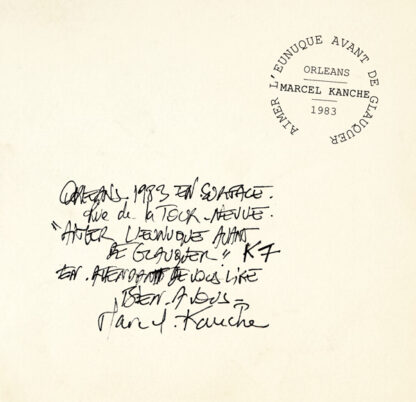 AIMER L'EUNUQUE AVANT DE GLAUQUER
ORLEANS
MARCEL KANCHE
1983
ORLEANS 1983 EN SURFACE.
Rue de la TOUR-NEUVE.
"AIMER L'EUNUQUE AVANT
DE GLAUQUER" K7
EN ATTENDANT DE VOUS LIRE
BIEN A VOUS -
Marcel. Kanche